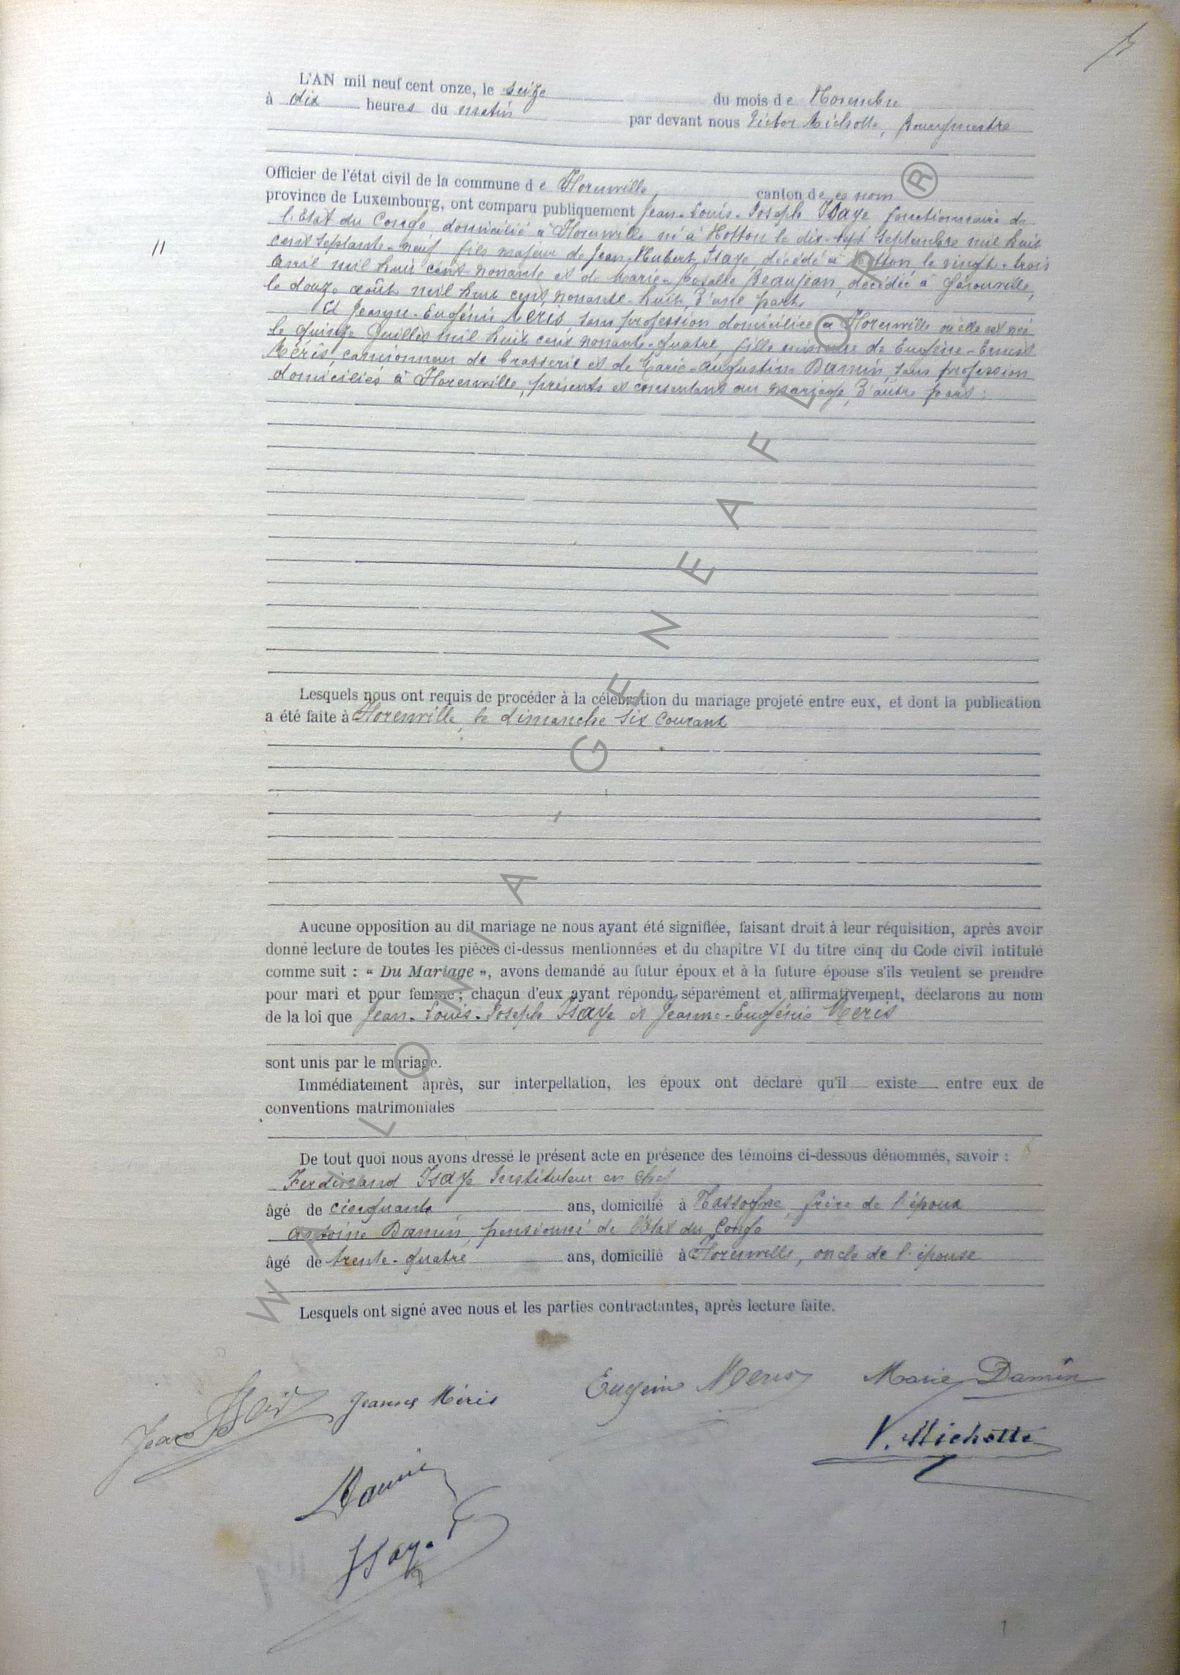 L'AN mil neuf cent onze, le seize du mois de Novembre
à dix heures du matin par devant nous Victor Michotte, Bourgmestre
Officier de l'état civil de la commune de Florenville, canton de ce nom
province de Luxembourg, ont comparu publiquement Jean-Louis-Joseph Isaye fonctionnaire de
l'Etat du Congo, domicilié à Florenville né à Hotton le dix-sept septembre mil huit
11
cent septante-neuf, fils majeur de Jean-Hubert Isaye, décédé à Hotton le vingt-trois
avril mil huit cent nonante et de Marie-Rosalie Beaujean, décédée à Gérouville,
le douze août mil huit cent nonante-huit, d'une part,
Et Jeanne-Eugénie Meris sans profession domiciliée à Florenville où elle est née
le quinze Juillet mil huit cent nonante-quatre, fille mineure de Eugène-Ernest
Méris camionneur de brasserie et de Marie-Augustine Damin sans profession
domiciliés à Florenville, présents et consentant au mariage, d'autre part;
Lesquels nous ont requis de procéder à la célébration du mariage projeté entre eux, et dont la publication
a été faite à Florenville, le dimanche six courant
Aucune opposition au dit mariage ne nous ayant été signifiée, faisant droit à leur réquisition, après avoir
donné lecture de toutes les pièces ci-dessus mentionnées et du chapitre VI du titre cinq du Code civil intitulé
comme suit : « Du Mariage », avons demandé au futur époux et à la future épouse s'ils veulent se prendre
pour mari et pour femme ; chacun d'eux ayant répondu séparément et affirmativement, déclarons au nom
de la loi que Jean-Louis-Joseph Isaye et Jeanne-Eugénie Meris
sont unis par le mariage.
Immédiatement après, sur interpellation, les époux ont déclaré qu'il existe entre eux de
conventions matrimoniales
De tout quoi nous avons dressé le présent acte en présence des témoins ci-dessous dénommés, savoir :
Ferdinand Isaye Instituteur en chef
âgé de cinquante ans, domicilié à Nassogne, frère de l'époux
Antoine Damin, pensionné de l'Etat du Congo
âgé de trente-quatre ans, domicilié à Florenville, oncle de l'épouse
Lesquels ont signé avec nous et les parties contractantes, après lecture faite.
Jeanne Méris Eugène Meris Marie Damin
V. Michotte
Damin
Isaye
WALLONIA - GENEAFLOR ®